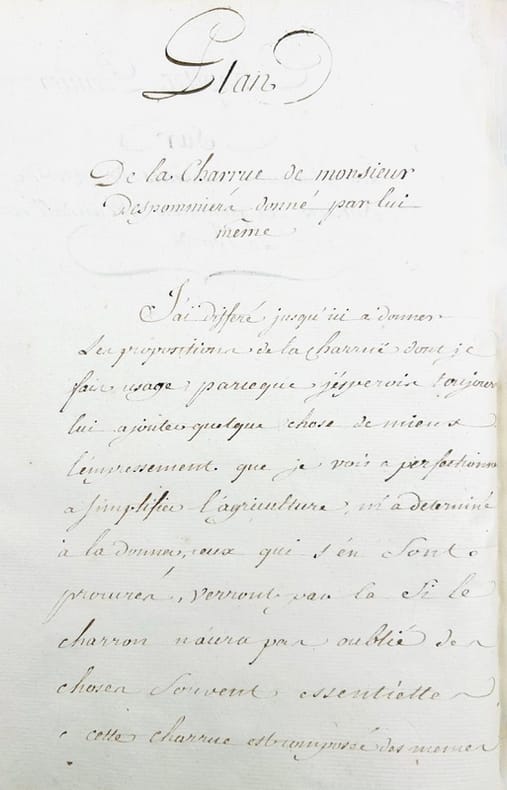 Plan
De la Charrue de monsieur
Despommiers donné par lui
même
J'ai differé jusqu'ici a donner
Les propositions de la Charrue dont je
fais usage, parceque j'esperois toujours
lui ajouter quelque chose de mieux
l'empressement que je vois a perfectionner
a simplifier l'agriculture, m'a determiné
à la donner, ceux qui s'en sont
procurés, verront par la si le
charron n'aura pas oublié des
choses souvent essentielles
cette charrue est composée des memes